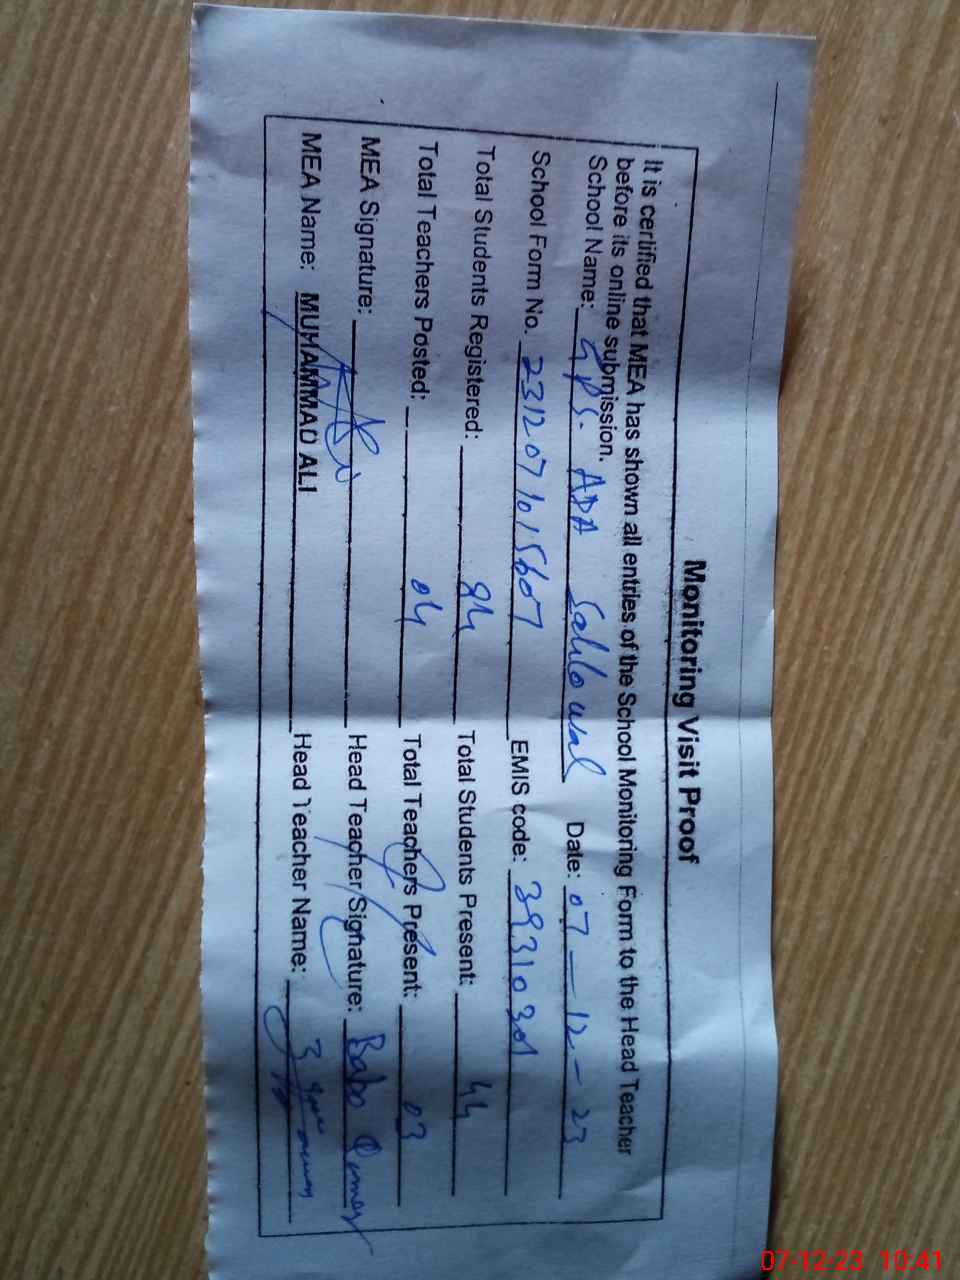 Monitoring Visit Proof
It is certified that MEA has shown all entries of the School Monitoring Form to the Head Teacher
before its online submission.
School Name: GPS. ADA Sahlowal Date: 07-12-23
School Form No. 2312071015607 EMIS code: 39310301
Total Students Registered: 84 Total Students Present: 44
Total Teachers Posted: 04 Total Teachers Present: 03
MEA Signature: Head Teacher Signature: Babo
MEA Name: MUHAMMAD ALI Head Teacher Name:
07-12-23 10:41